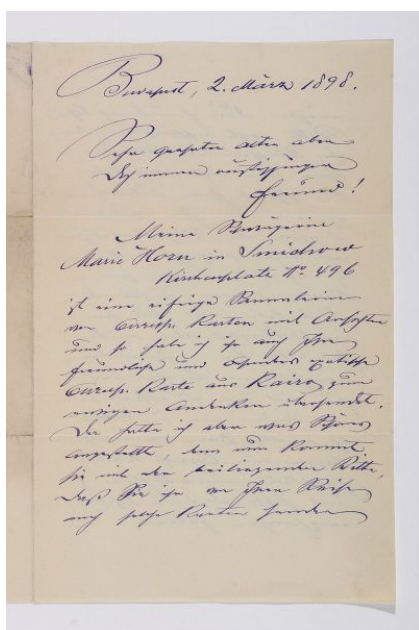 Budapest, 2. März 1898.
Sehr geehrter alter aber
doch immer
Freund!
Meine Schwägerin
Marie Horn in Smichow
Kirchenplatz No. 496
ist eine eifrige Sammlerin
von Corresp. Karten mit Ansichten
und so habe ich ihr auch Ihre
freundliche und
Corresp. Karte aus Kairo, zum
ewigen Andenken übersendet.
Da hatte ich aber was Schönes
angestellt, denn nun kommt
sie mit der beiliegenden Bitte,
daß Sie ihr von Ihrer Reise
auch solche Karten senden